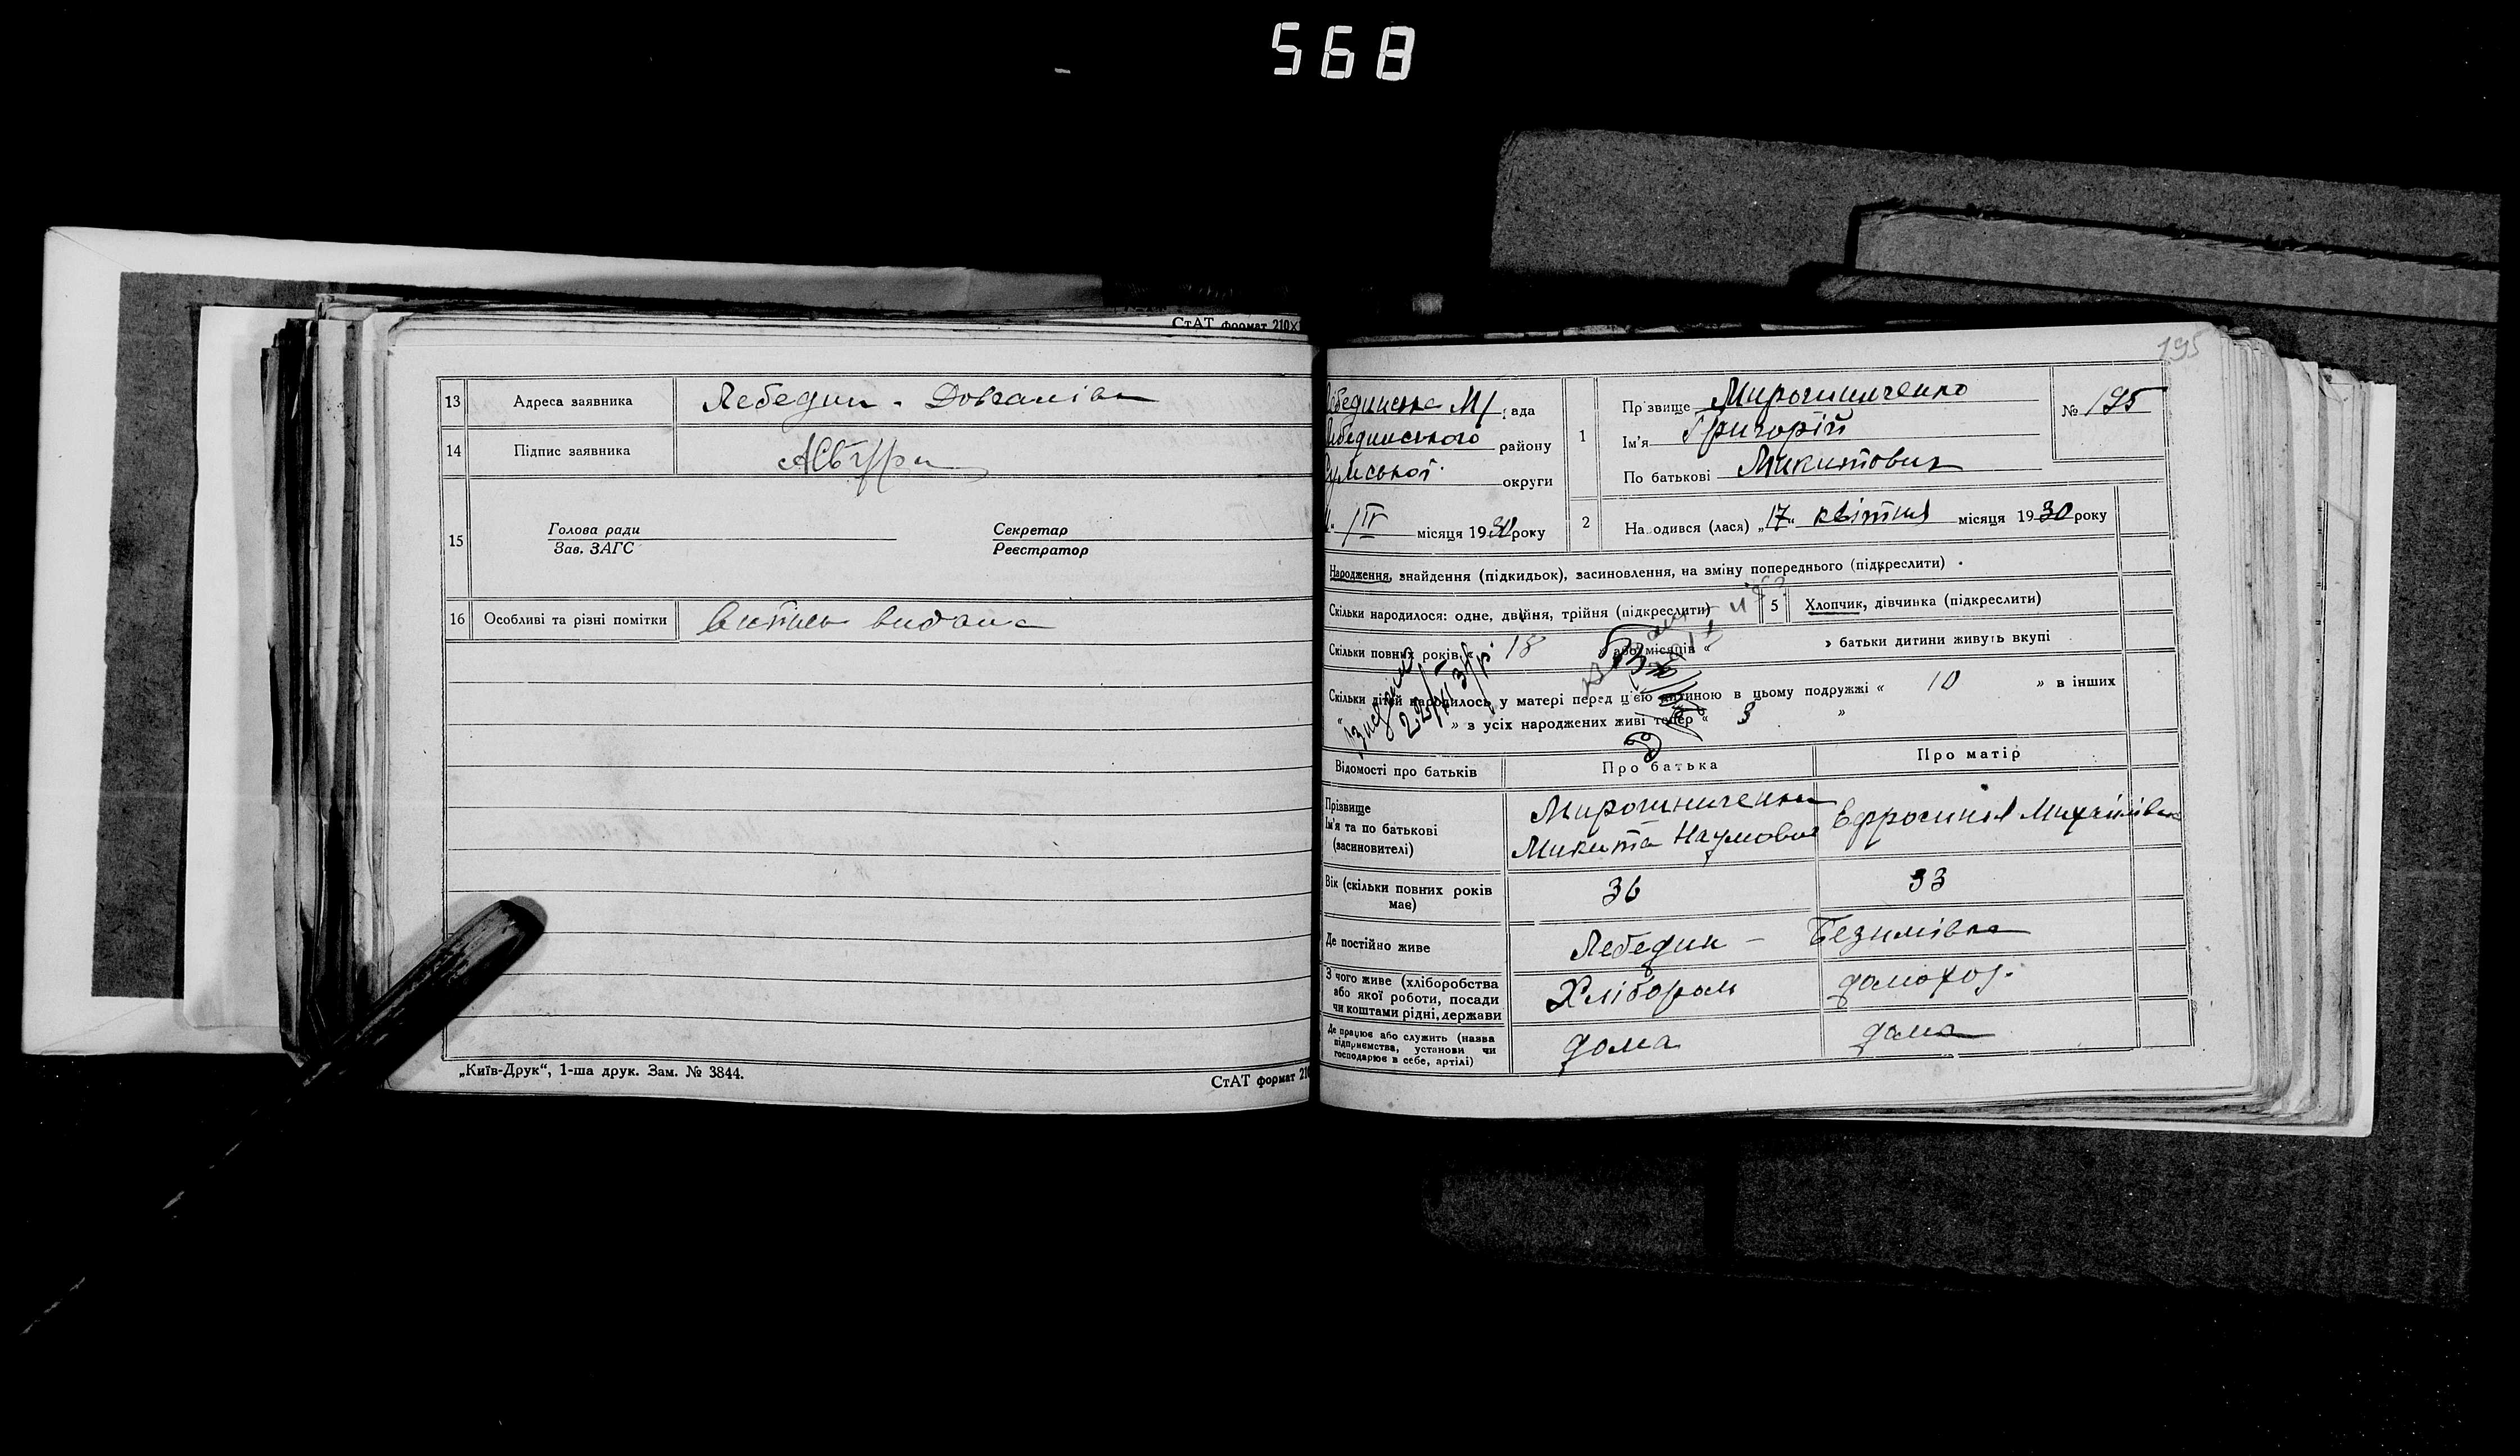 568
СтАТ формат 210X
13 Адреса заявника Лебедин - Довгалівка
14 Підпис заявника
15 Голова ради Секретар
Зав. ЗАГС Реєстратор
16 Особливі та різні помітки витяг видана
„Київ-Друк“, 1-ша друк. Зам. № 3844.
СтАТ формат 210
195
Лебединська М/рада
Лебединського району
Сумської округи
IV місяця 1930 року
1 Прізвище Мирошниченко
Ім'я Григорій
По батькові Микитович
№ 195
2 Народився (лася) „17“ квітня місяця 1930 року
Народження, знайдення (підкидьок), засиновлення, на зміну попереднього (підкреслити)
Скільки народилося: одне, двійня, трійня (підкреслити) 5 Хлопчик, дівчинка (підкреслити)
Скільки повних років „ 18 або місяців “ » батьки дитини живуть вкупі
Скільки дітей народилось у матері перед цією дитиною в цьому подружжі “ 10 » в інших
“ » з усіх народжених живі тепер “ 3 »
22/XI 3/р.
Відомості про батьків Про батька Про матір
Прізвище
Ім'я та по батькові
(засиновителі)
Мирошниченко
Микита Наумович
Ефросинія Михайлівна
Вік (скільки повних років має) 36 33
Де постійно живе Лебедин - Безимівка
З чого живе (хліборобства або якої роботи, посади чи коштами рідні, держави Хлібороб домохоз.
Де працює або служить (назва підприємства, установи чи господарює в себе, артілі) дома дома